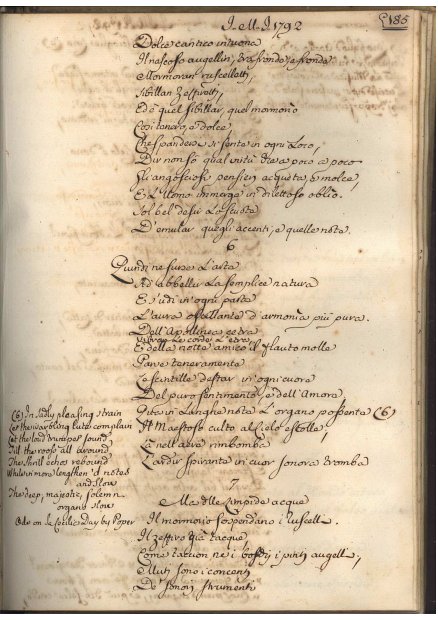 185
J. M. J. 1792
Dolce cantico intuona
Il nascoso augellin, tra fronda, e fronda
Mormoran' ruscelletti,
Sibillan Zeffiretti,
Ed è quel sibillar, quel mormorio
Così tenero, e dolce,
Che spandere si sente in ogni Loco,
Dir non sò qual virtù che a poco a poco
Gli angosciosi pensieri acqueta, e molce,
E L'Uomo immerge in dilettoso oblio.
Sol bel desir La
D'emular quegli accenti, e quelle note.
6
Quindi ne surse L'arte
Ad abbellir La semplice natura
E s'udì in ogni parte
L'aura oscillante d'armonia più pura.
Dell'Apollinea cetra
Vibrar Le corde L'etra
E della notte amico il Flauto molle
Parve teneramente
Le scintille destar in ogni cuore
Del puro sentimento, e dell'Amore,
Gitta in Lunghe note L'organo possente (6)
Il Maestoso culto al Cielo estolle,
E nell'alve rimbomba
L'ardir spirante in cuor sonora tromba
7
Ma delle Limpide acque
Il mormorio sospendano i ruscelli.
Il zeffiro già tacque
Come taccion ne i boschi i pinti augelli,
Muti sono i concenti
De sonori strumenti
(6) In sadly pleasing strain
Let the warbling lute complain
Let the loud trumpet sound,
Till the roofs all around
The shrill echos rebound
While in more lengthen'd notes
and slow
The deep, majestic, solemn
organs blow
Ode on St. Cecilie's Day by Poper